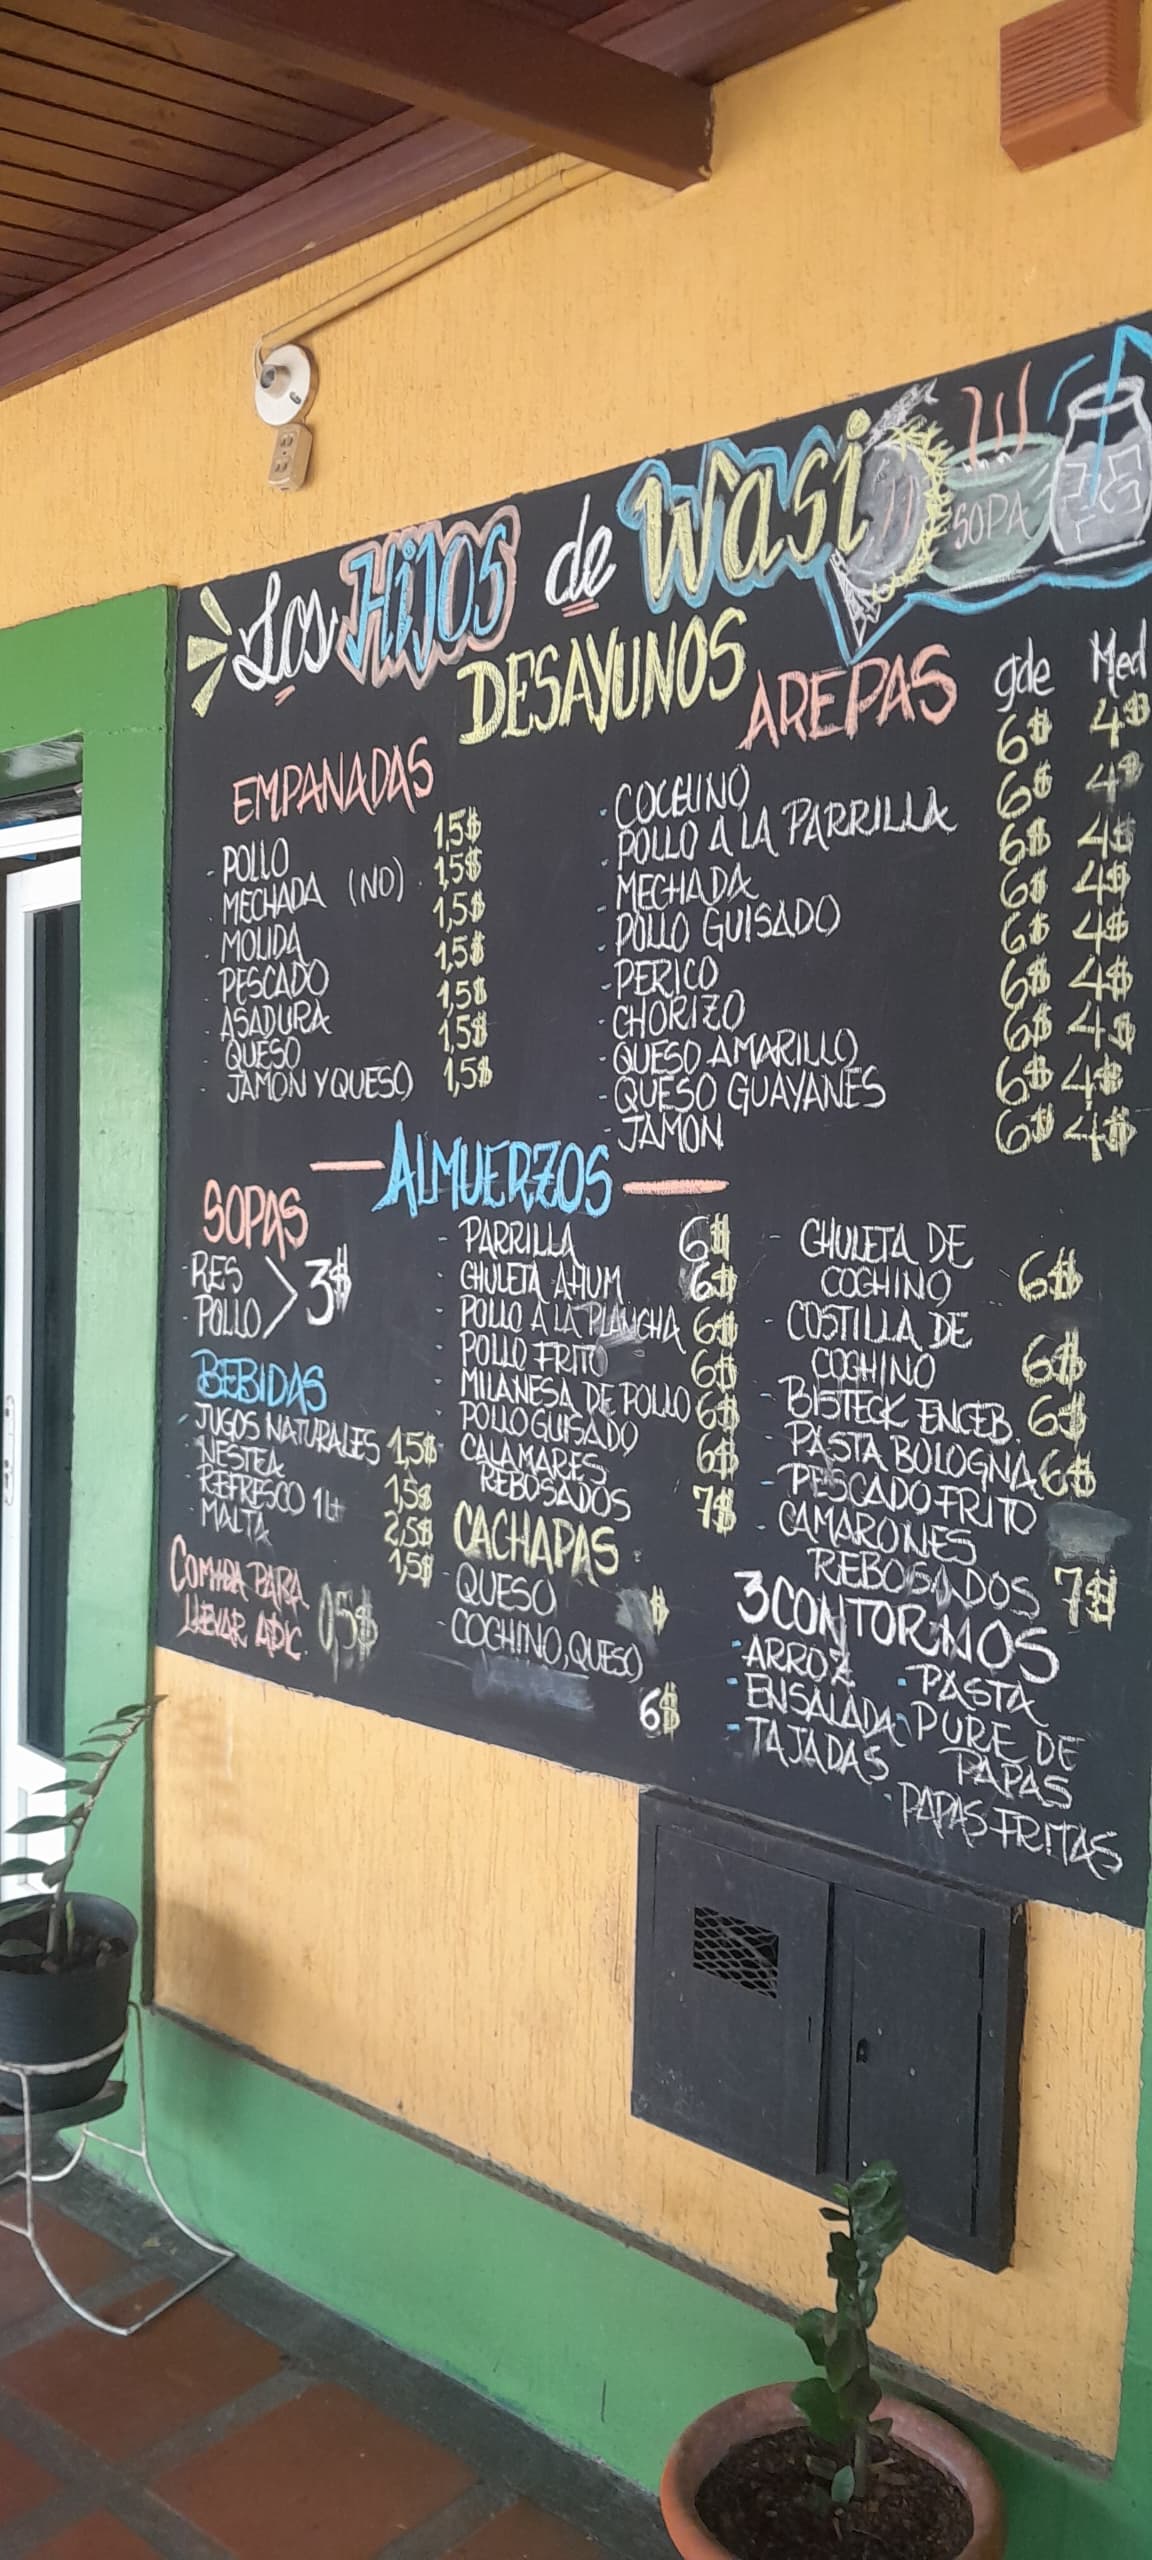 Los Hijos de Wasi
SOPA
DESAYUNOS
EMPANADAS
- POLLO 1,5$
- MECHADA (NO) 1,5$
- MOLIDA 1,5$
- PESCADO 1,5$
- ASADURA 1,5$
- QUESO 1,5$
- JAMON Y QUESO 1,5$
AREPAS gde Med
- COCHINO 6$ 4$
- POLLO A LA PARRILLA 6$ 4$
- MECHADA 6$ 4$
- POLLO GUISADO 6$ 4$
- PERICO 6$ 4$
- CHORIZO 6$ 4$
- QUESO AMARILLO 6$ 4$
- QUESO GUAYANES 6$ 4$
- JAMON 6$ 4$
ALMUERZOS
SOPAS
- RES
- POLLO > 3$
BEBIDAS
- JUGOS NATURALES 1,5$
- NESTEA 1,5$
- REFRESCO 1Lt 2,5$
- MALTA 1,5$
COMIDA PARA
LLEVAR ADIC. 0,5$
- PARRILLA 6$
- CHULETA AHUM 6$
- POLLO A LA PLANCHA 6$
- POLLO FRITO 6$
- MILANESA DE POLLO 6$
- POLLO GUISADO 6$
- CALAMARES
REBOSADOS 7$
CACHAPAS
- QUESO $
- COCHINO, QUESO
6$
- CHULETA DE
COCHINO 6$
- COSTILLA DE
COCHINO 6$
- BISTECK ENCEB. 6$
- PASTA BOLOGNA 6$
- PESCADO FRITO
- CAMARONES
REBOSADOS 7$
3 CONTORNOS
- ARROZ
- ENSALADA
- TAJADAS
- PASTA
- PURE DE
PAPAS
- PAPAS FRITAS